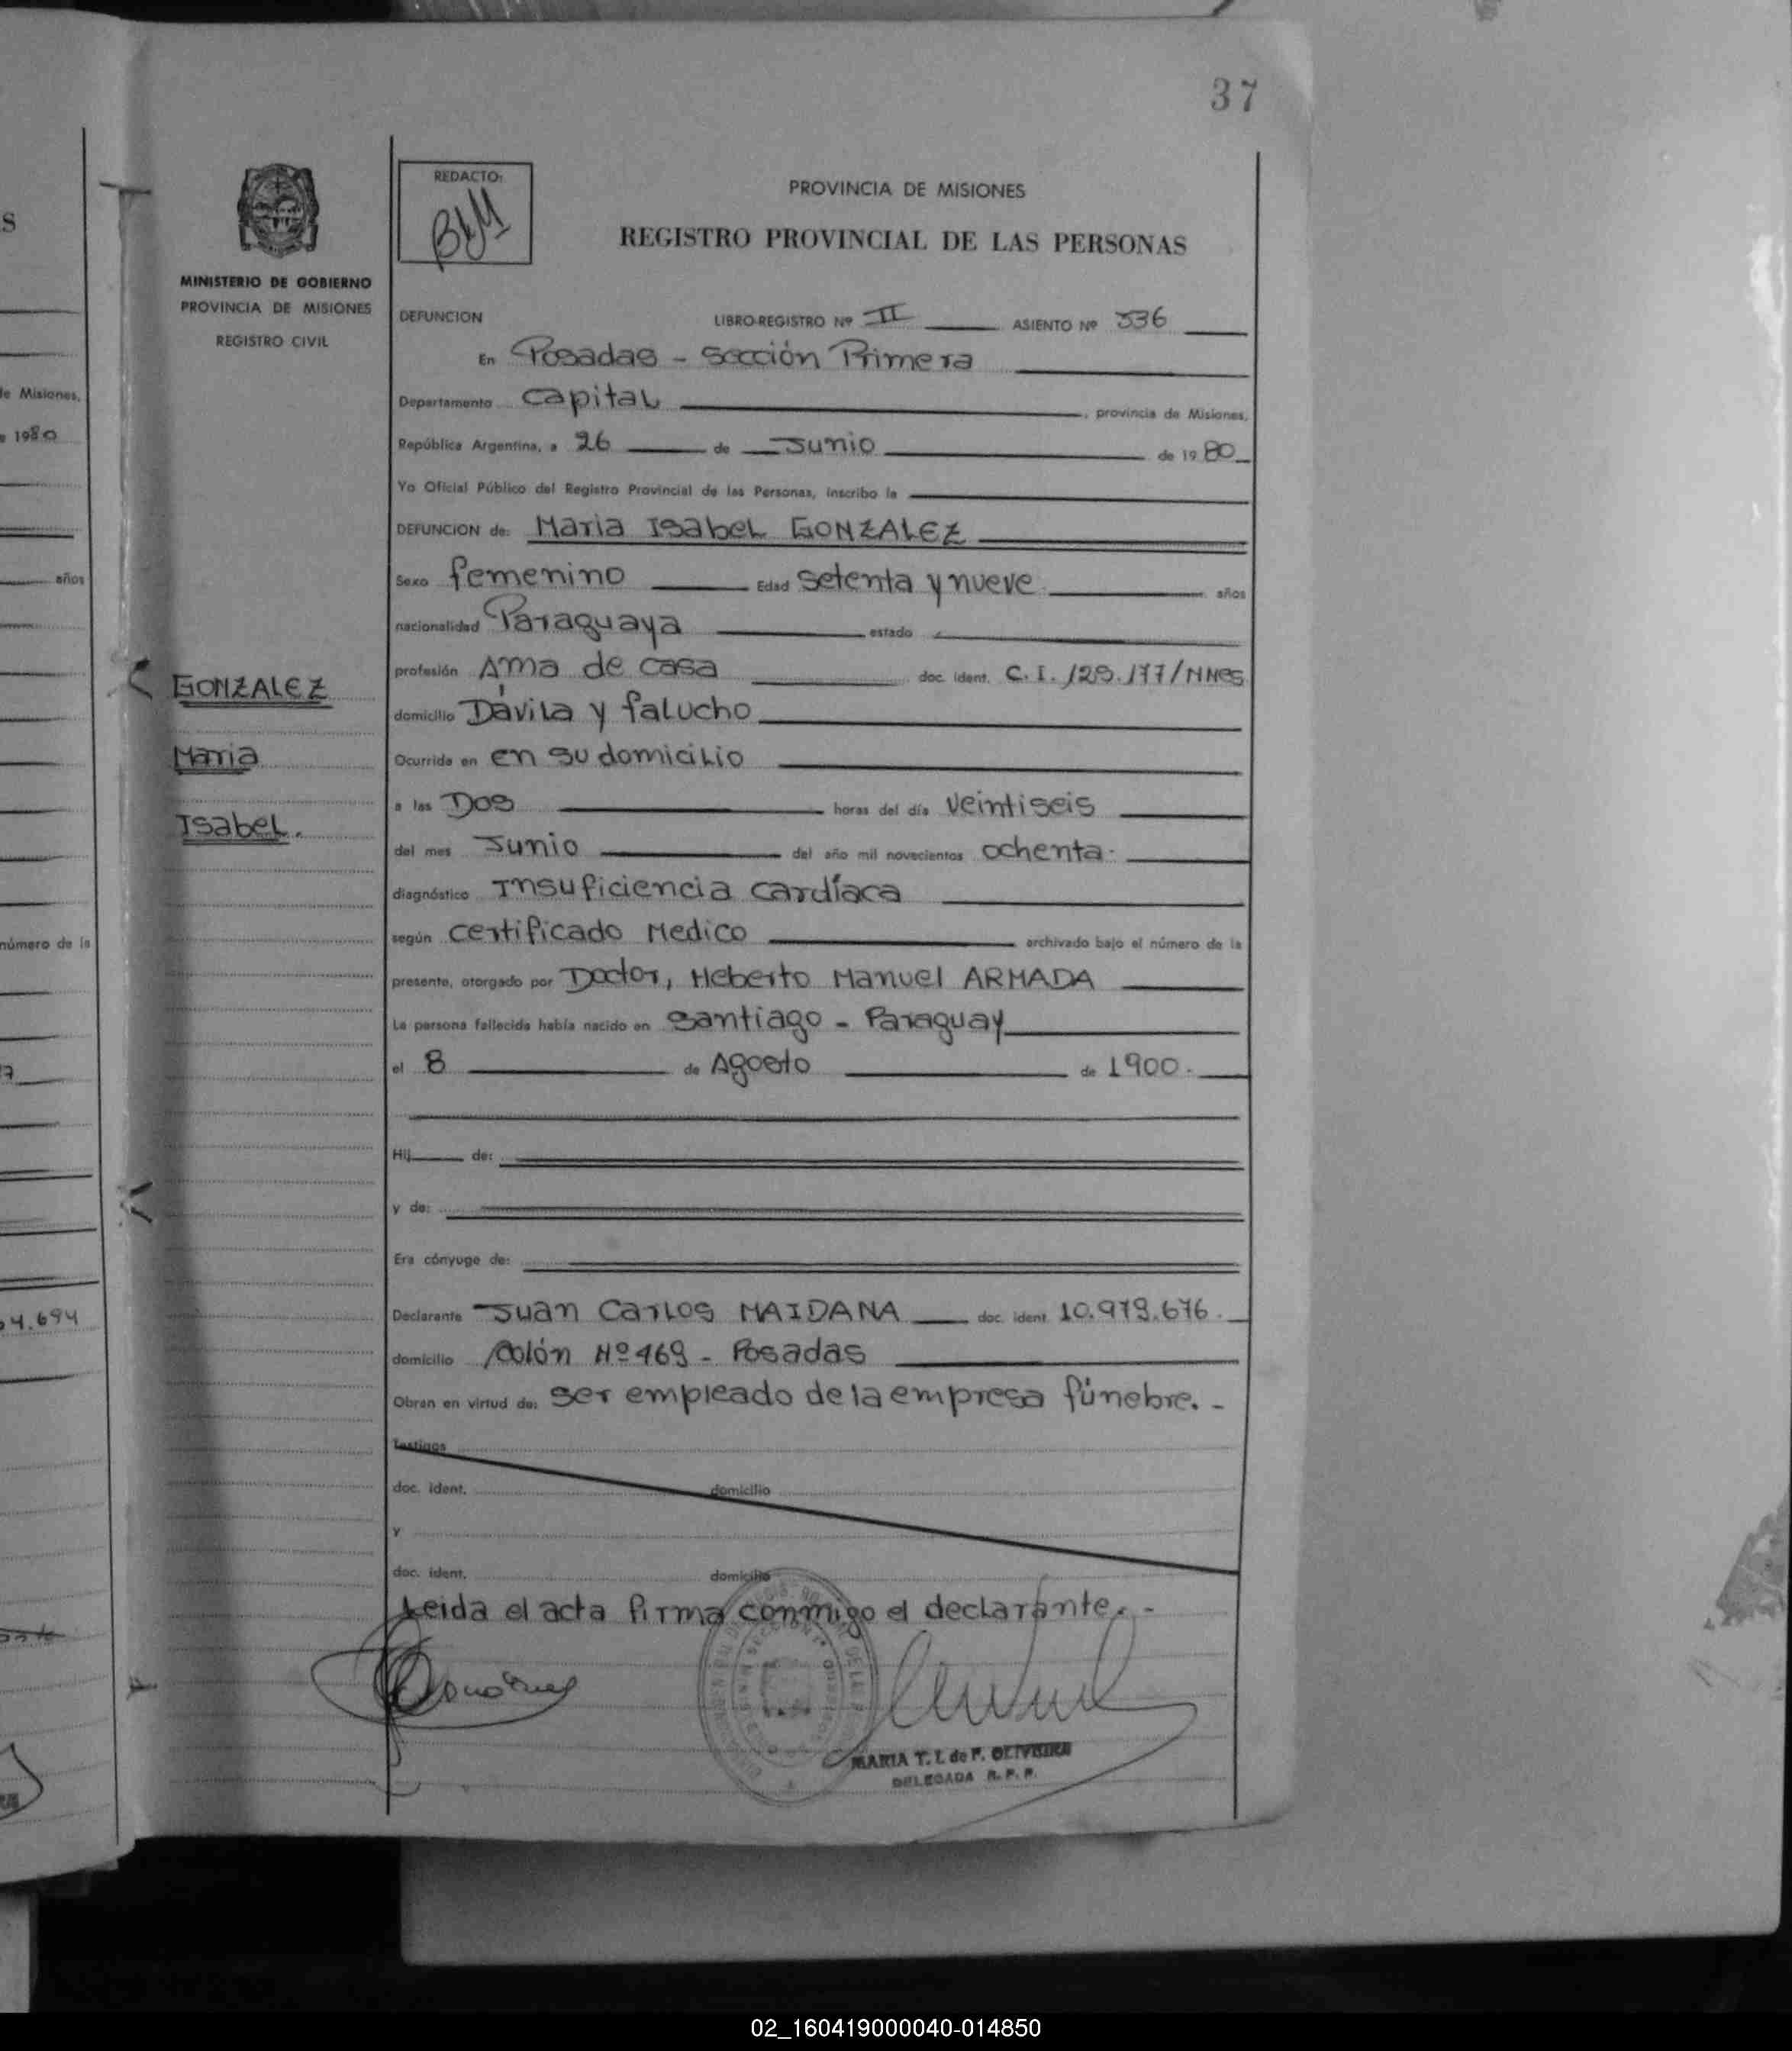 37
S
de Misiones,
e 1980
años
número de la
4.694
MINISTERIO DE GOBIERNO
PROVINCIA DE MISIONES
REGISTRO CIVIL
GONZALEZ
Maria
Isabel.
REDACTO:
PROVINCIA DE MISIONES
REGISTRO PROVINCIAL DE LAS PERSONAS
DEFUNCION LIBRO-REGISTRO Nº II ASIENTO Nº 536
En Posadas - Sección Primera
Departamento Capital, provincia de Misiones,
República Argentina, a 26 de Junio de 1980
Yo Oficial Público del Registro Provincial de las Personas, inscribo la
DEFUNCION de: Maria Isabel GONZALEZ
Sexo femenino Edad setenta y nueve años
nacionalidad Paraguaya estado
profesión Ama de casa doc. ident. C.I. 129.177/MNES
domicilio Dávila y falucho
Ocurrida en en su domicilio
a las Dos horas del día veintiseis
del mes Junio del año mil novecientos ochenta.
diagnóstico Insuficiencia cardíaca
según certificado Medico archivado bajo el número de la
presente, otorgado por Doctor, Heberto Manuel ARMADA
La persona fallecida había nacido en Santiago - Paraguay
el 8 de Agosto de 1900.
Hij de:
y de:
Era cónyuge de:
Declarante Juan Carlos MAIDANA doc. ident. 10.979.676.
domicilio Colón Nº 469 - Posadas
Obran en virtud de: ser empleado de la empresa fúnebre. -
Testigos
doc. ident. domicilio
y
doc. ident. domicilio
Leida el acta firma conmigo el declarante. -
MARIA T. I. de F. OLIVEIRA
DELEGADA R. P. P.
02_160419000040-014850